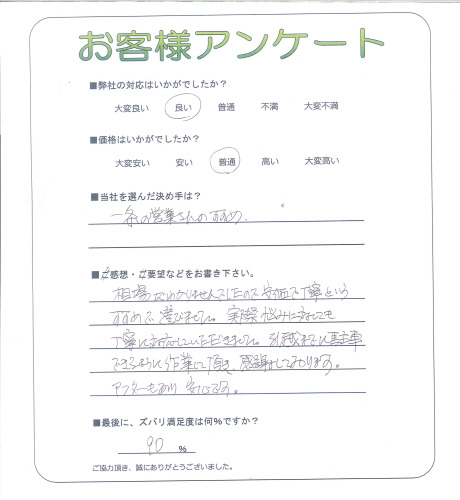 お客様アンケート
■弊社の対応はいかがでしたか？
大変良い 良い 普通 不満 大変不満
■価格はいかがでしたか？
大変安い 安い 普通 高い 大変高い
■当社を選んだ決め手は？
一条の営業さんのすすめ。
■ご感想・ご要望などをお書き下さい。
相場がわかりませんでしたので安価で丁寧という
すすめで選びました。実際悩みにましても
丁寧に対応していただきました。引越までに駐車
できるように作業して頂き、感謝しております。
アフターもあり安心です。
■最後に、ズバリ満足度は何%ですか？
90 %
ご協力頂き、誠にありがとうございました。